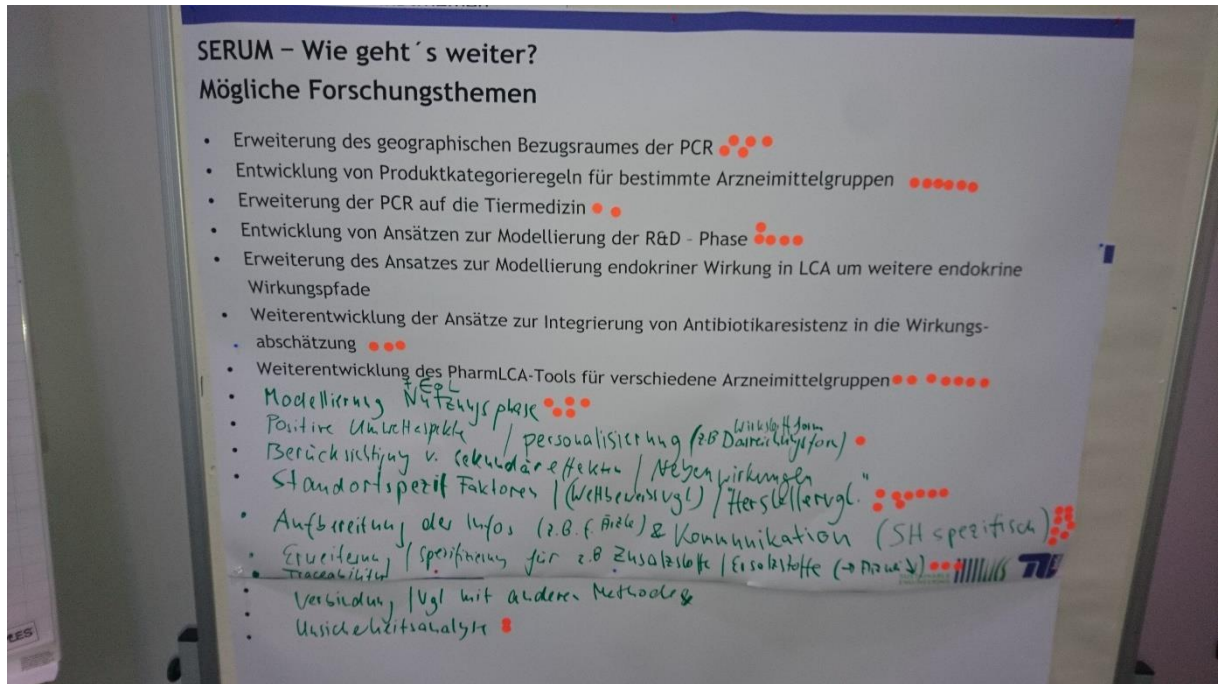 SERUM – Wie geht´s weiter?
Mögliche Forschungsthemen
• Erweiterung des geographischen Bezugsraumes der PCR
• Entwicklung von Produktkategorieregeln für bestimmte Arzneimittelgruppen
• Erweiterung der PCR auf die Tiermedizin
• Entwicklung von Ansätzen zur Modellierung der R&D - Phase
• Erweiterung des Ansatzes zur Modellierung endokriner Wirkung in LCA um weitere endokrine
Wirkungspfade
• Weiterentwicklung der Ansätze zur Integrierung von Antibiotikaresistenz in die Wirkungs-
abschätzung
• Weiterentwicklung des PharmLCA-Tools für verschiedene Arzneimittelgruppen
+ EoL
• Modellierung Nutzungsphase
Wirkstoffform
• Positive Umweltaspekte / personalisierung (zB Darreichungsform)
• Berücksichtigung v. sekundäreffekten / Nebenwirkungen
• Standortspezif Faktoren / (Wettbewerbsvgl) / "Herstellervgl."
• Aufbereitung der Infos (z.B. f. Ärzte) & Kommunikation (SH spezifisch)
• Erweiterung / spezifizierung für z.B Zusatzstoffe / Ersatzstoffe
• Traceability
• Verbindung / Vgl mit anderen Methoden
• Unsicherheitsanalyse